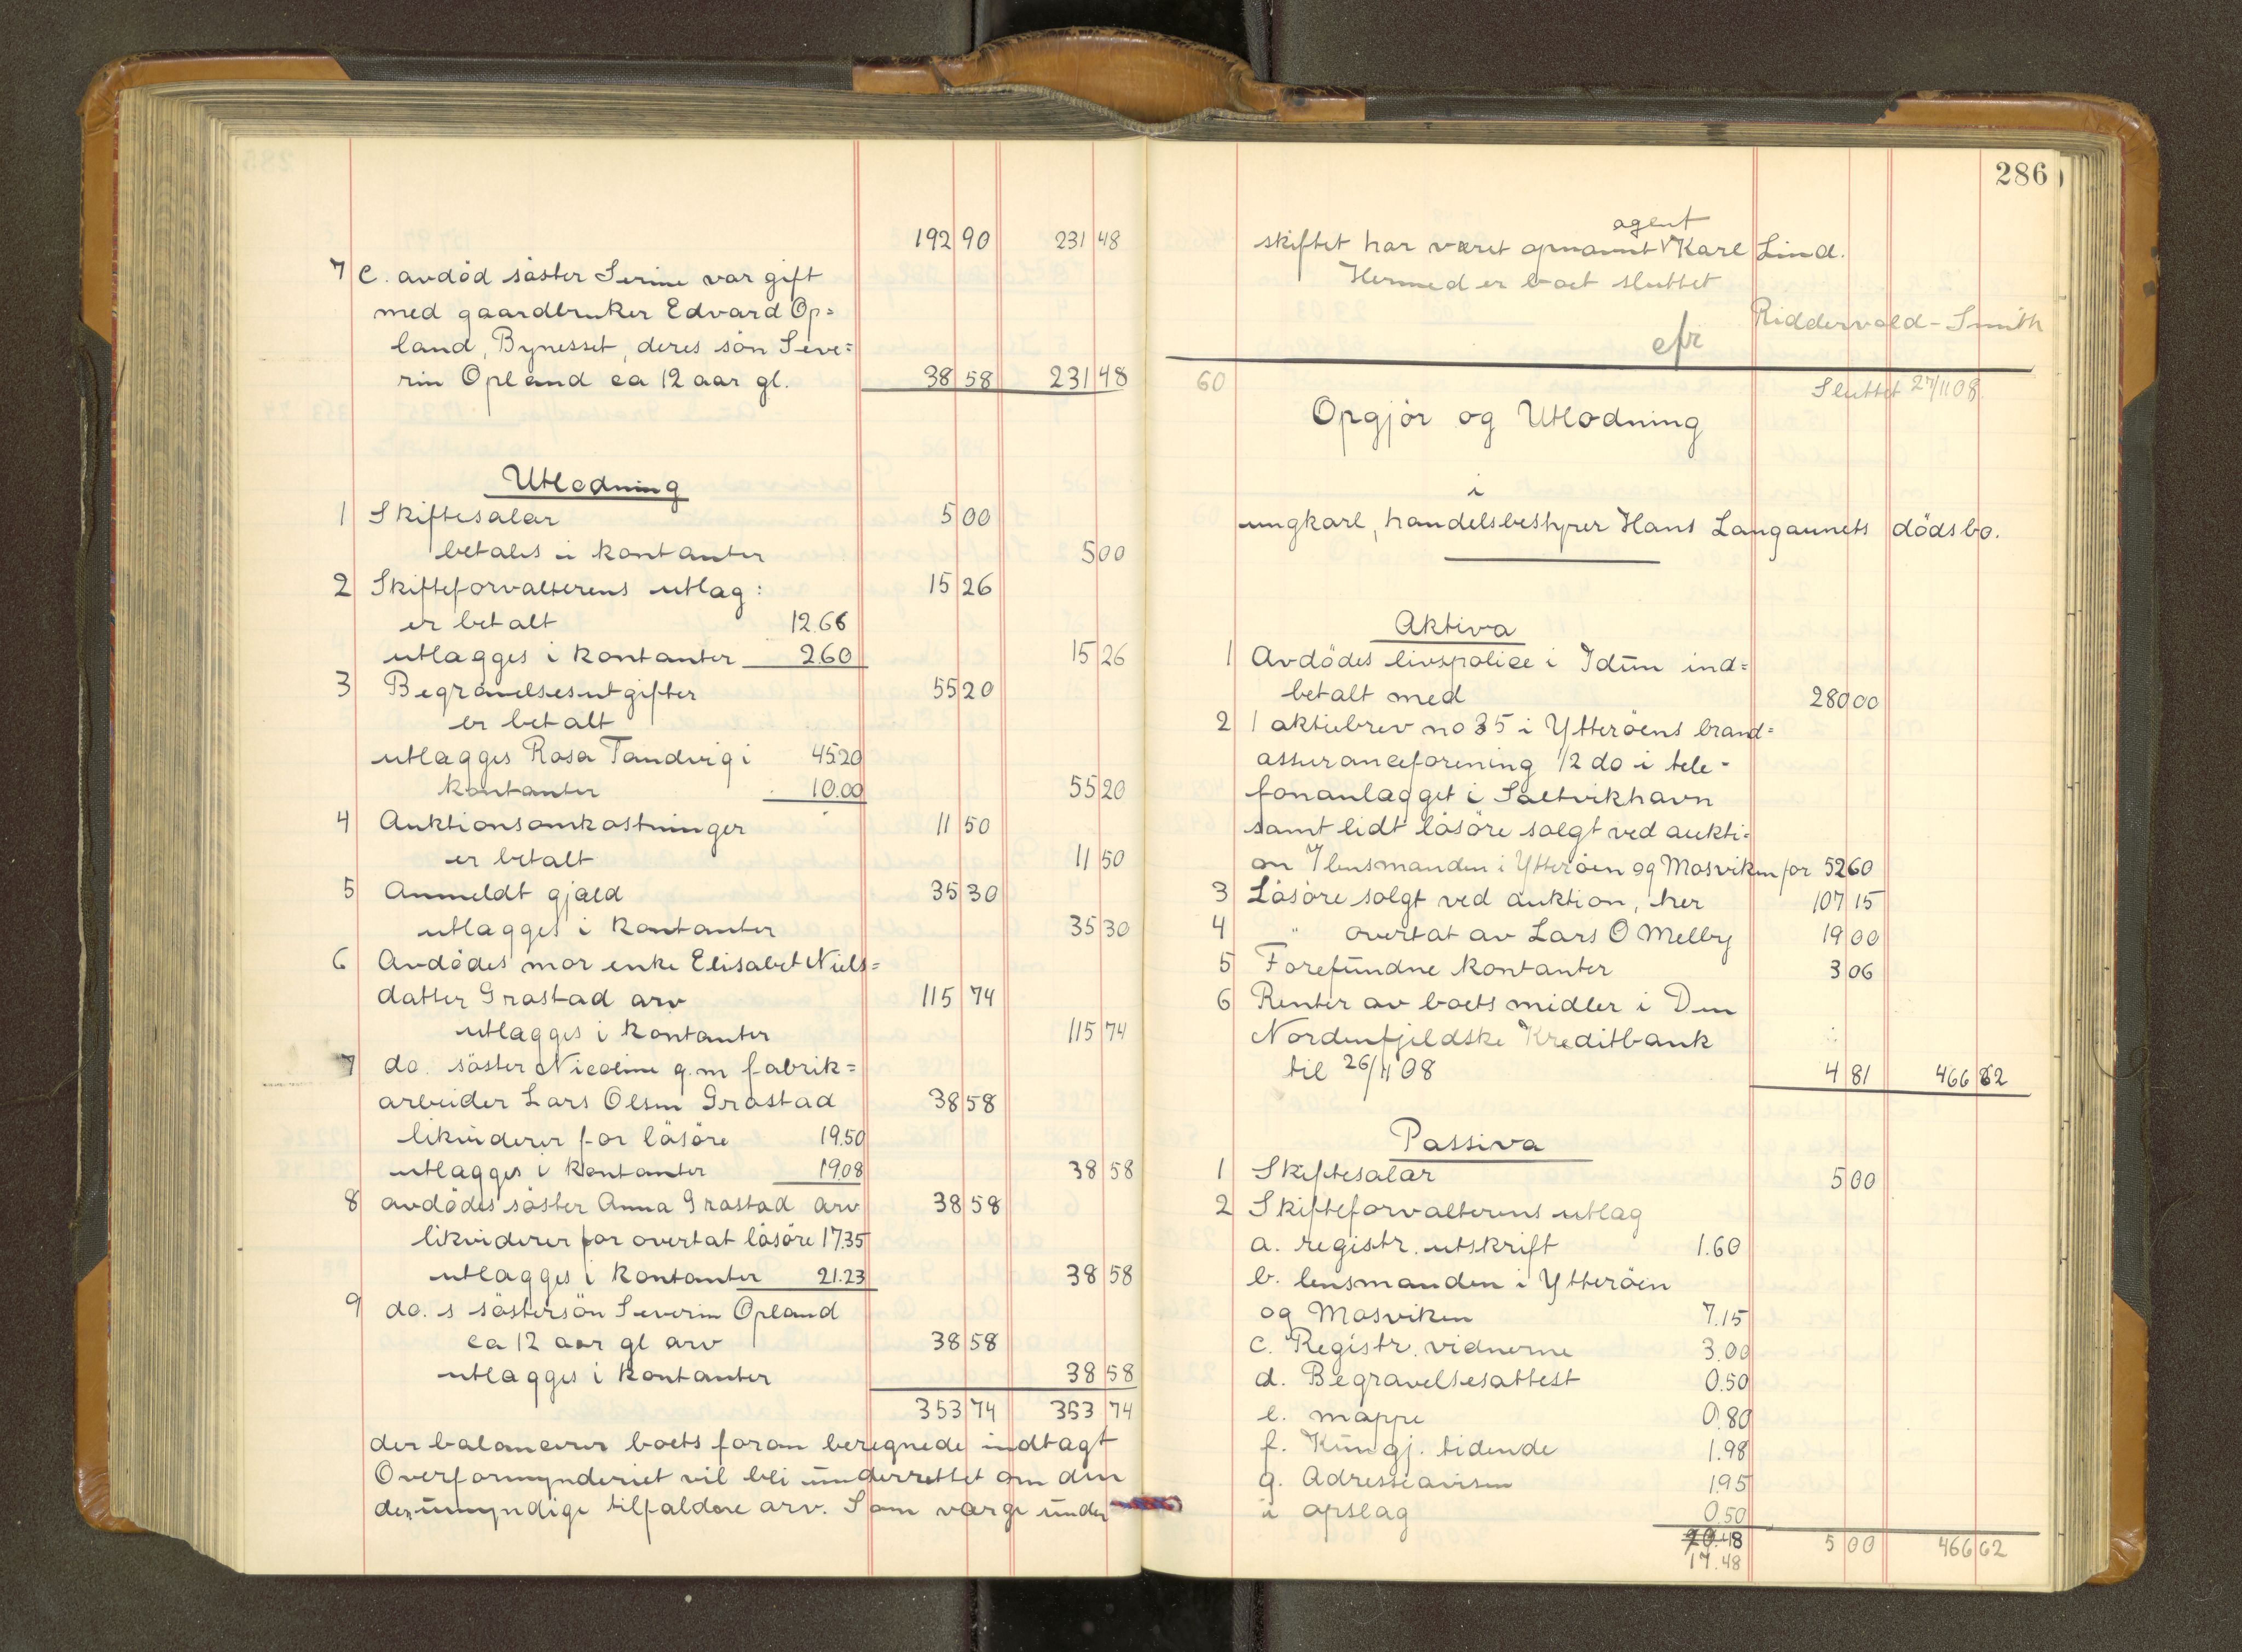 192 90 231 48
7 c. avdöd söster Serine var gift
med gaardbruker Edvard Op=
land, Bynesset, deres sön Seve=
rin Opland ca 12 aar gl. 38 58 231 48
Utlodning
1 Skiftesalær 5 00
betales i kontanter 5 00
2 Skifteforvalterens utlæg: 15 26
er betalt 12.66
utlægges i kontanter 2.60 15 26
3 Begravelsesutgifter 55 20
er betalt
utlægges Rosa Tandvig i 45.20
kontanter 10.00 55 20
4 Auktionsomkostninger 11 50
er betalt 11 50
5 Anmeldt gjæld 35 30
utlægges i kontanter 35 30
6 Avdödes mor enke Elisabet Niels=
datter Grøstad arv 115 74
utlægges i kontanter 115 74
7 do. söster Nicoline g.m fabrik=
arbeider Lars Olsen Grøstad 38 58
likviderer for lösöre 19.50
utlægges i kontanter 19.08 38 58
8 avdödes söster Anna Grøstad arv 38 58
likviderer for overtat lösöre 17.35
utlægges i kontanter 21.23 38 58
9 do. s söstersön Severin Opland
ca 12 aar gl arv 38 58
utlægges i kontanter 38 58
353 74 353 74
der balancerer boets foran beregnede indtægt
Overformynderiet vil bli underrettet om den
den umyndige tilfaldne arv. Som værge under
286
agent
skiftet har været opnævnt Karl Lind.
Hermed er boet sluttet
Riddervold-Smith
efr
60 Sluttet 27/11 08
Opgjör og Utlodning
i
ungkarl, handelsbestyrer Hans Langaunets dödsbo.
Aktiva
1 Avdödes livspolice i Idun ind=
betalt med 280 00
2 1 aktiebrev no 35 i Ytteröens brand=
assuranceforening 1/2 do i tele-
fonanlægget i Saltvikhavn
samt lidt lösöre solgt ved aukti=
on / lensmanden i Ytteröen og Mosviken for 52 60
3 Lösöre solgt ved auktion, her 107 15
4 " overtat av Lars O Melby 19 00
5 Forefundne kontanter 3 06
6 Renter av boets midler i Den
Nordenfjeldske Kreditbank
til 26/11 08 4 81 466 62
Passiva
1 Skiftesalær 5 00
2 Skifteforvalterens utlæg
a. registr. utskrift 1.60
b. lensmanden i Ytteröen
og Mosviken 7.15
c. Registr. vidnerne 3.00
d. Begravelsesattest 0.50
e. mappe 0.80
f. Kungj. tidende 1.98
g. Adresseavisen 1.95
i opslag 0.50
20.48 5 00 466 62
17.48